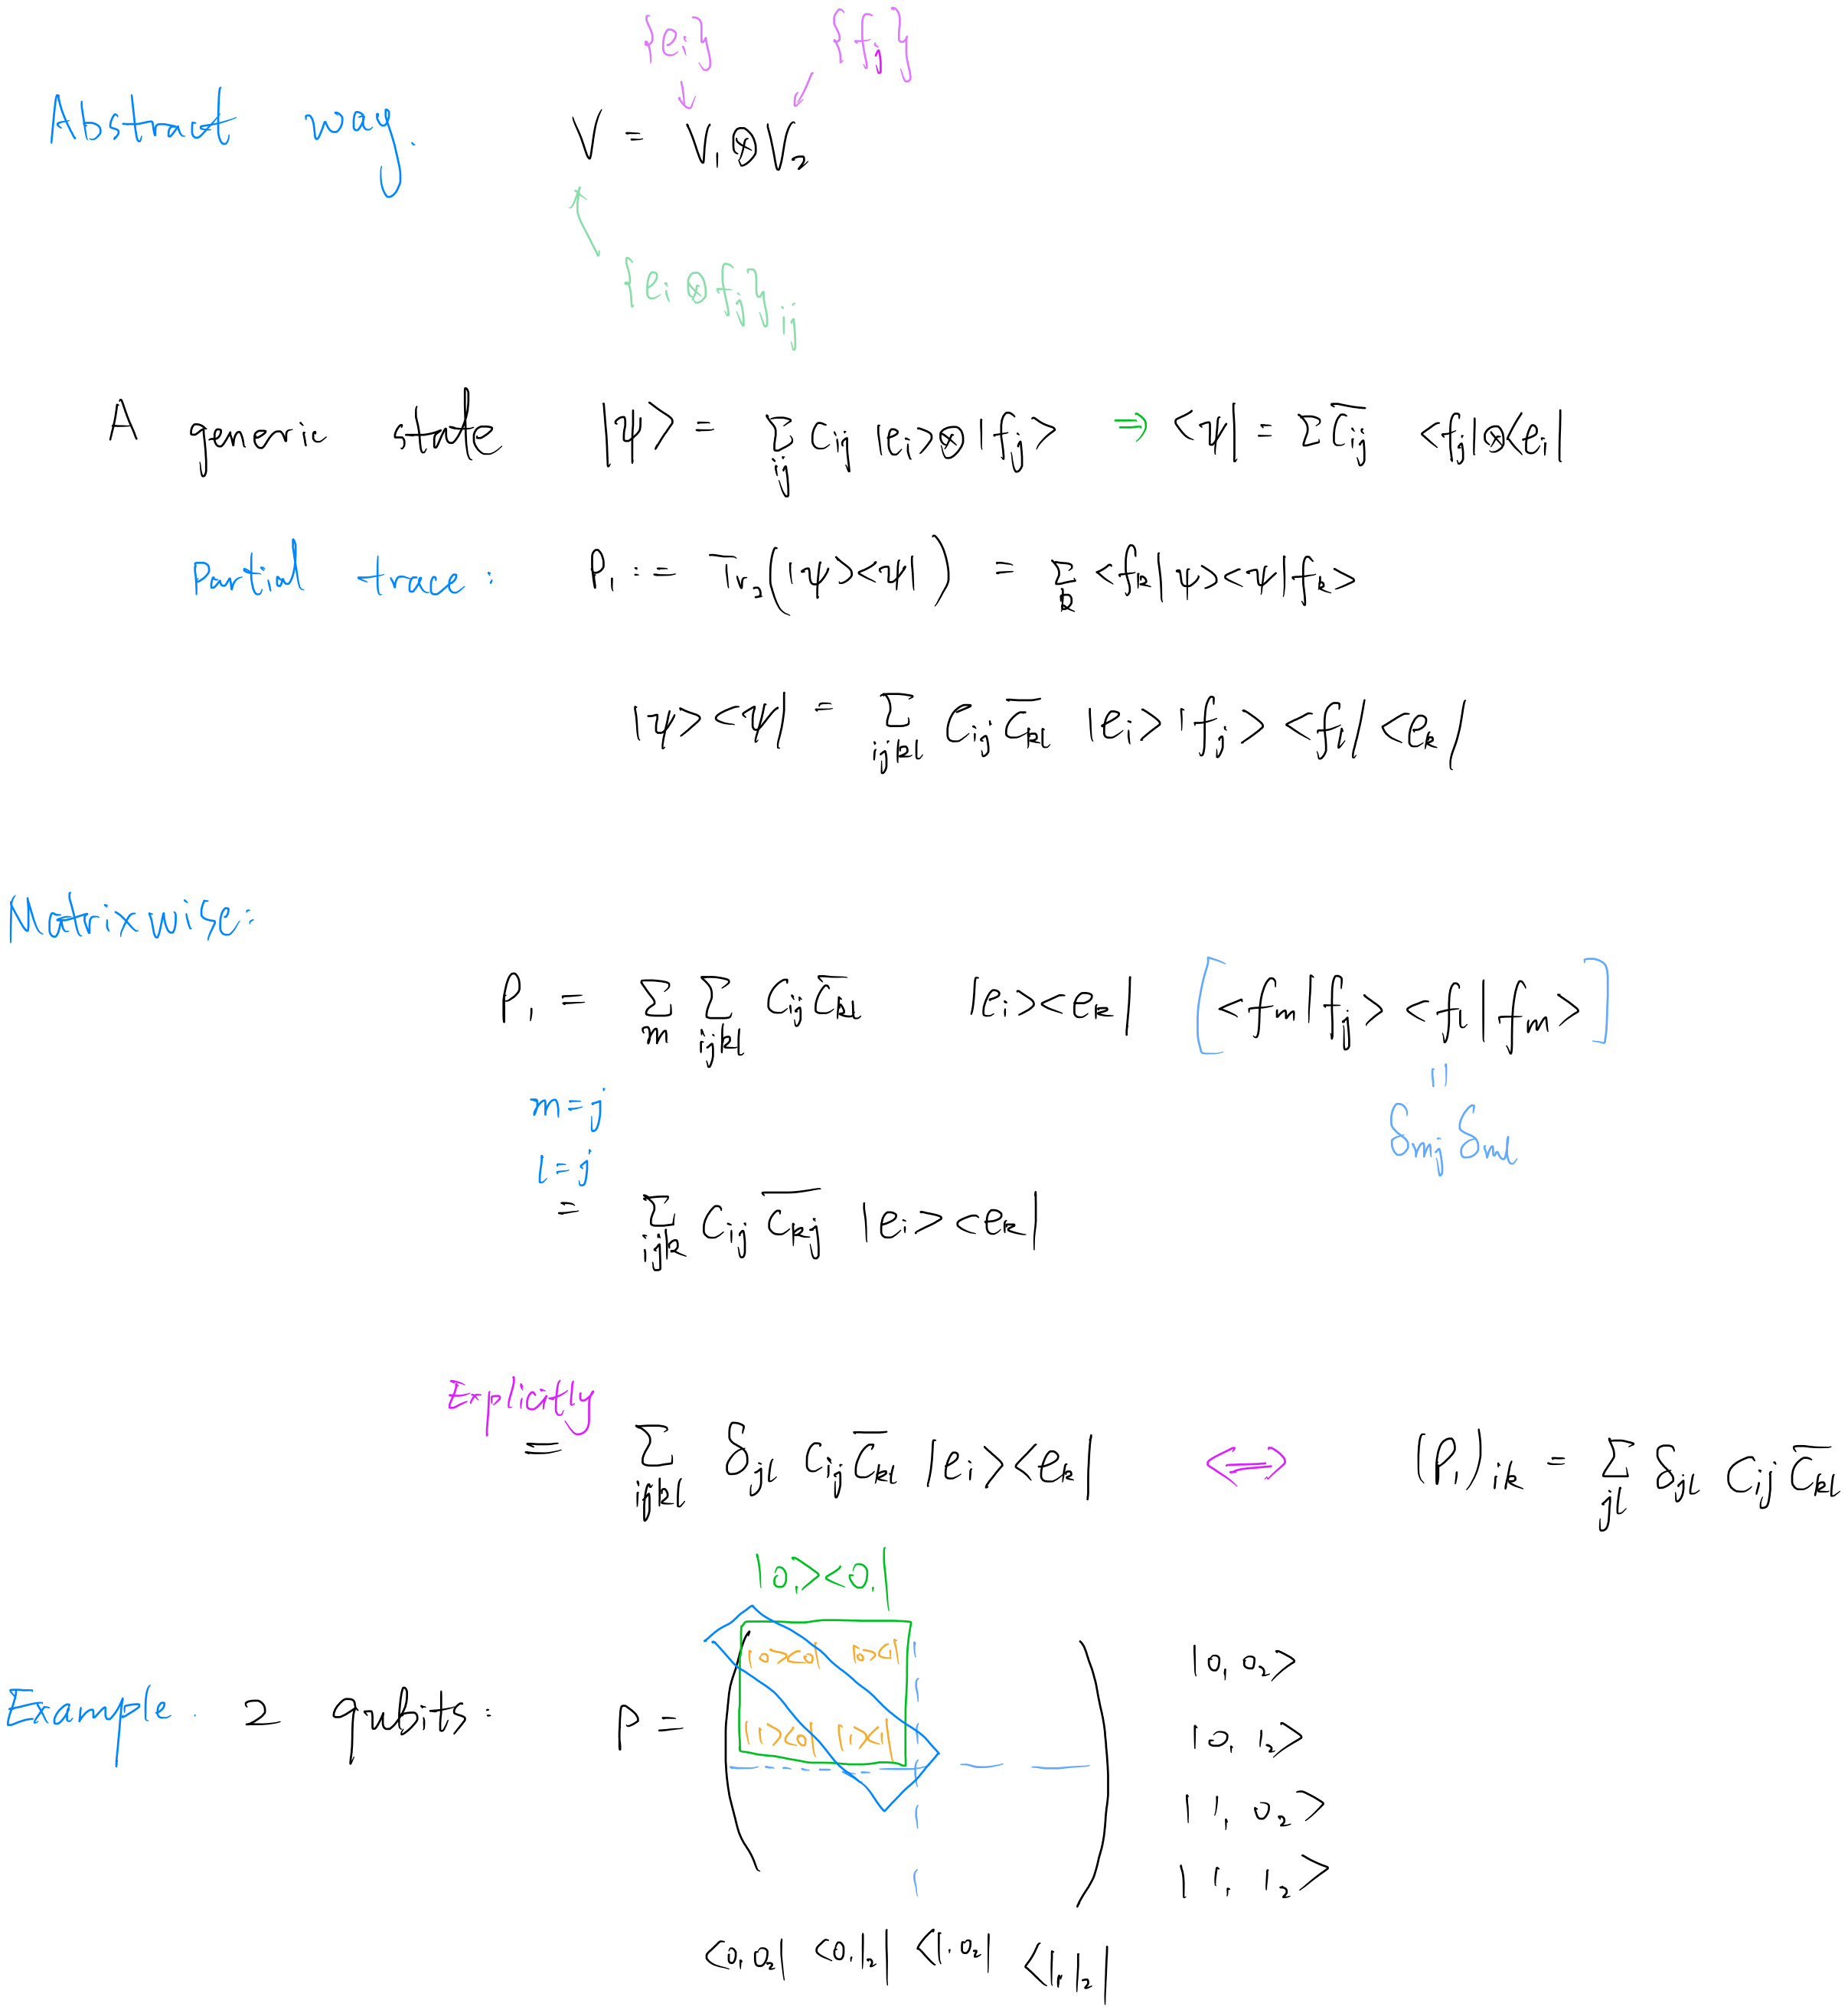 {e_i} {f_j}
Abstract way. V = V_1 ⊗ V_2
{e_i ⊗ f_j}_{ij}
A generic state |ψ> = Σ_{ij} C_{ij} |e_i> ⊗ |f_j> ⇒ <ψ| = Σ \overline{C_{ij}} <f_j| ⊗ <e_i|
Partial trace: ρ_1 := Tr_2(|ψ><ψ|) = Σ_k <f_k|ψ><ψ|f_k>
|ψ><ψ| = Σ_{ijkl} C_{ij} \overline{C_{kl}} |e_i> |f_j> <f_l| <e_k|
Matrixwise:
ρ_1 = Σ_m Σ_{ijkl} C_{ij} \overline{C_{kl}} |e_i><e_k| [<f_m|f_j> <f_l|f_m>]
m=j
"
l=j
δ_{mj} δ_{ml}
= Σ_{ijk} C_{ij} \overline{C_{kj}} |e_i><e_k|
Explicitly
= Σ_{ijkl} δ_{jl} C_{ij} \overline{C_{kl}} |e_i><e_k| ⟺ (ρ_1)_{ik} = Σ_{jl} δ_{jl} C_{ij} \overline{C_{kl}}
|0_1><0_1|
|0><0| |0><1| |0_1 0_2>
Example. 2 qubits: ρ = |1><0| |1><1| |0_1 1_2>
|1_1 0_2>
|1_1 1_2>
<0_1 0_2| <0_1 1_2| <1_1 0_2| <1_1 1_2|